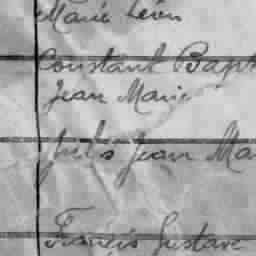 Marie Léon
Constant Bapt
Jean Marie
Jules Jean Ma
Francis Gustave